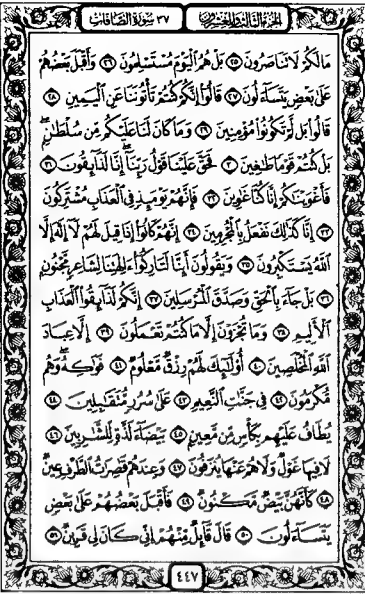 الجزء الثالث والعشرون ٣٧ سورة الصافات
مَا لَكُمْ لَا تَنَاصَرُونَ ٢٥ بَلْ هُمُ الْيَوْمَ مُسْتَسْلِمُونَ ٢٦ وَأَقْبَلَ بَعْضُهُمْ
عَلَىٰ بَعْضٍ يَتَسَاءَلُونَ ٢٧ قَالُوا إِنَّكُمْ كُنتُمْ تَأْتُونَنَا عَنِ الْيَمِينِ ٢٨
قَالُوا بَل لَّمْ تَكُونُوا مُؤْمِنِينَ ٢٩ وَمَا كَانَ لَنَا عَلَيْكُم مِّن سُلْطَانٍ
بَلْ كُنتُمْ قَوْمًا طَاغِينَ ٣٠ فَحَقَّ عَلَيْنَا قَوْلُ رَبِّنَا إِنَّا لَذَائِقُونَ ٣١
فَأَغْوَيْنَاكُمْ إِنَّا كُنَّا غَاوِينَ ٣٢ فَإِنَّهُمْ يَوْمَئِذٍ فِي الْعَذَابِ مُشْتَرِكُونَ
٣٣ إِنَّا كَذَٰلِكَ نَفْعَلُ بِالْمُجْرِمِينَ ٣٤ إِنَّهُمْ كَانُوا إِذَا قِيلَ لَهُمْ لَا إِلَٰهَ إِلَّا
اللَّهُ يَسْتَكْبِرُونَ ٣٥ وَيَقُولُونَ أَئِنَّا لَتَارِكُوا آلِهَتِنَا لِشَاعِرٍ مَّجْنُونٍ
٣٦ بَلْ جَاءَ بِالْحَقِّ وَصَدَّقَ الْمُرْسَلِينَ ٣٧ إِنَّكُمْ لَذَائِقُوا الْعَذَابِ
الْأَلِيمِ ٣٨ وَمَا تُجْزَوْنَ إِلَّا مَا كُنتُمْ تَعْمَلُونَ ٣٩ إِلَّا عِبَادَ
اللَّهِ الْمُخْلَصِينَ ٤٠ أُولَٰئِكَ لَهُمْ رِزْقٌ مَّعْلُومٌ ٤١ فَوَاكِهُ وَهُم
مُّكْرَمُونَ ٤٢ فِي جَنَّاتِ النَّعِيمِ ٤٣ عَلَىٰ سُرُرٍ مُّتَقَابِلِينَ ٤٤
يُطَافُ عَلَيْهِم بِكَأْسٍ مِّن مَّعِينٍ ٤٥ بَيْضَاءَ لَذَّةٍ لِّلشَّارِبِينَ ٤٦
لَا فِيهَا غَوْلٌ وَلَا هُمْ عَنْهَا يُنزَفُونَ ٤٧ وَعِندَهُمْ قَاصِرَاتُ الطَّرْفِ عِينٌ
٤٨ كَأَنَّهُنَّ بَيْضٌ مَّكْنُونٌ ٤٩ فَأَقْبَلَ بَعْضُهُمْ عَلَىٰ بَعْضٍ
يَتَسَاءَلُونَ ٥٠ قَالَ قَائِلٌ مِّنْهُمْ إِنِّي كَانَ لِي قَرِينٌ ٥١
٤٤٧